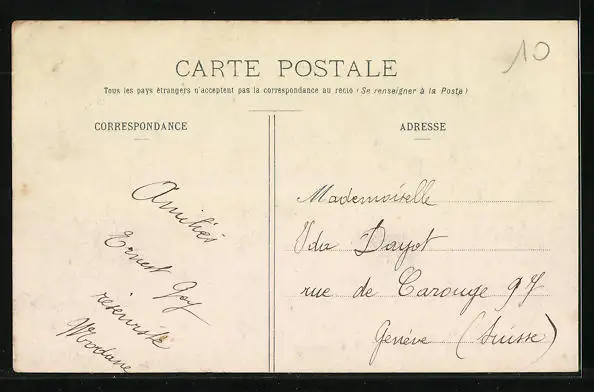 10
CARTE POSTALE
Tous les pays étrangers n'acceptent pas la correspondance au recto (Se renseigner à la Poste)
CORRESPONDANCE
ADRESSE
Amitiés
Ernest Gay
réserviste
Mademoiselle
Dayot
rue de Carouge 97
Genève (Suisse)